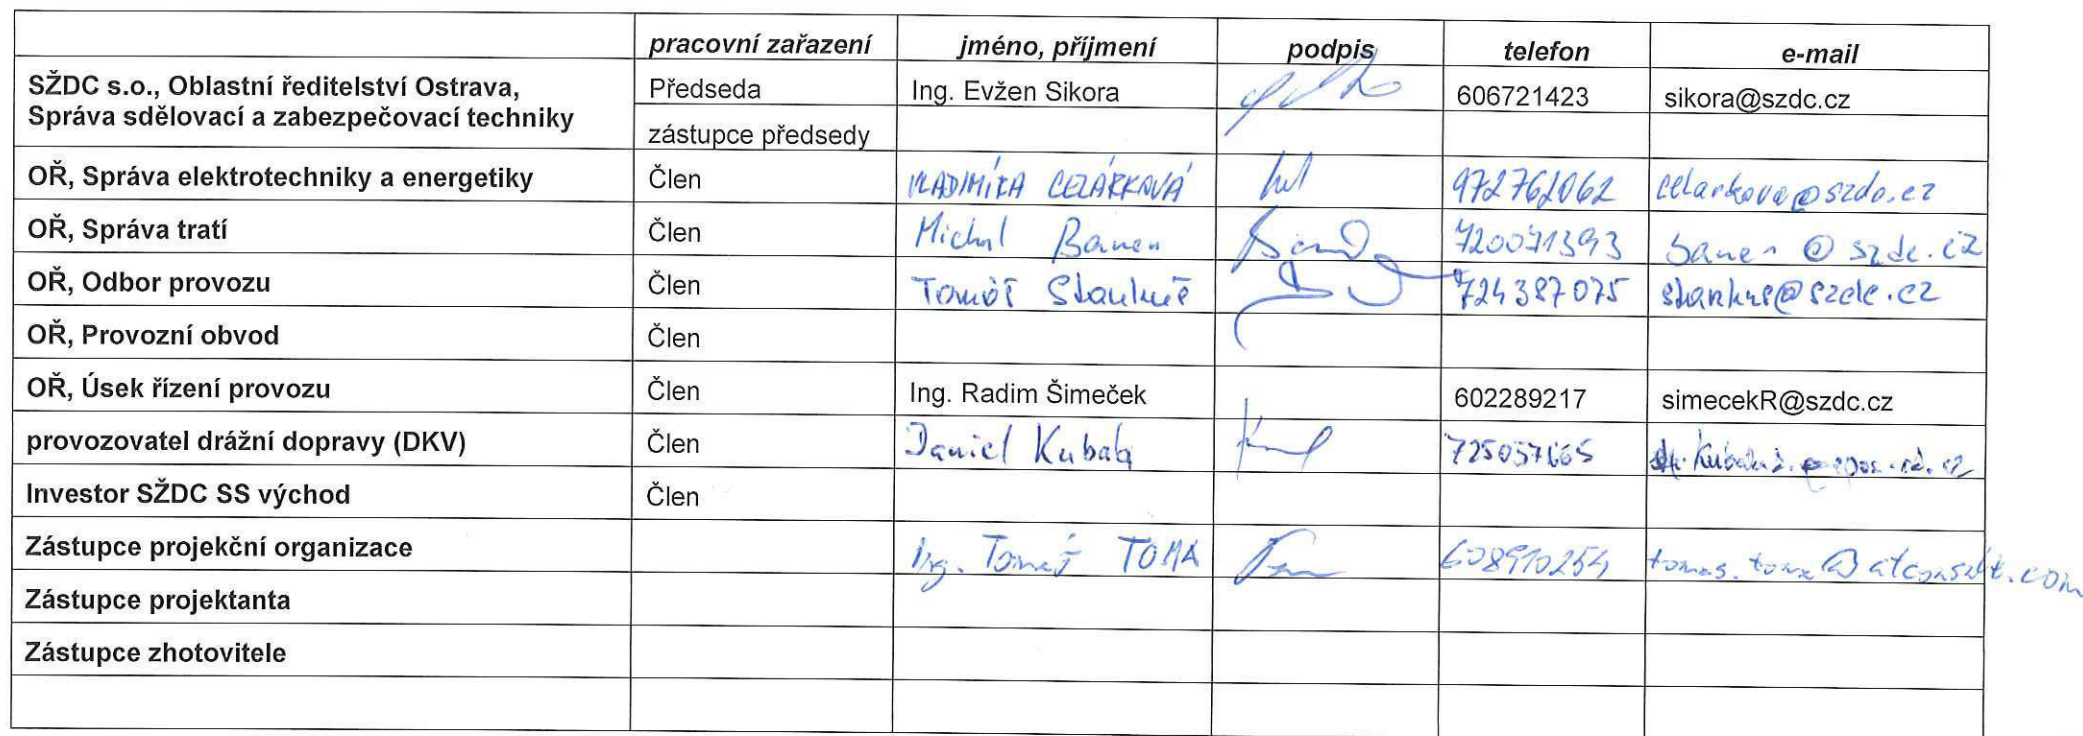 pracovní zařazení jméno, příjmení podpis telefon e-mail
SŽDC s.o., Oblastní ředitelství Ostrava, Předseda Ing. Evžen Sikora 606721423 sikora@szdc.cz
Správa sdělovací a zabezpečovací techniky
zástupce předsedy
OŘ, Správa elektrotechniky a energetiky Člen VLADIMÍRA CELÁRKOVÁ 972762062 celarkova@szdc.cz
OŘ, Správa tratí Člen Michal 720071393 @szdc.cz
OŘ, Odbor provozu Člen Tomáš 724387075
OŘ, Provozní obvod Člen
OŘ, Úsek řízení provozu Člen Ing. Radim Šimeček 602289217 simecekR@szdc.cz
provozovatel drážní dopravy (DKV) Člen Daniel Kubala
Investor SŽDC SS východ Člen
Zástupce projekční organizace Ing. Tomáš TOMA 608910254 tomas.toma@atconsult.com
Zástupce projektanta
Zástupce zhotovitele